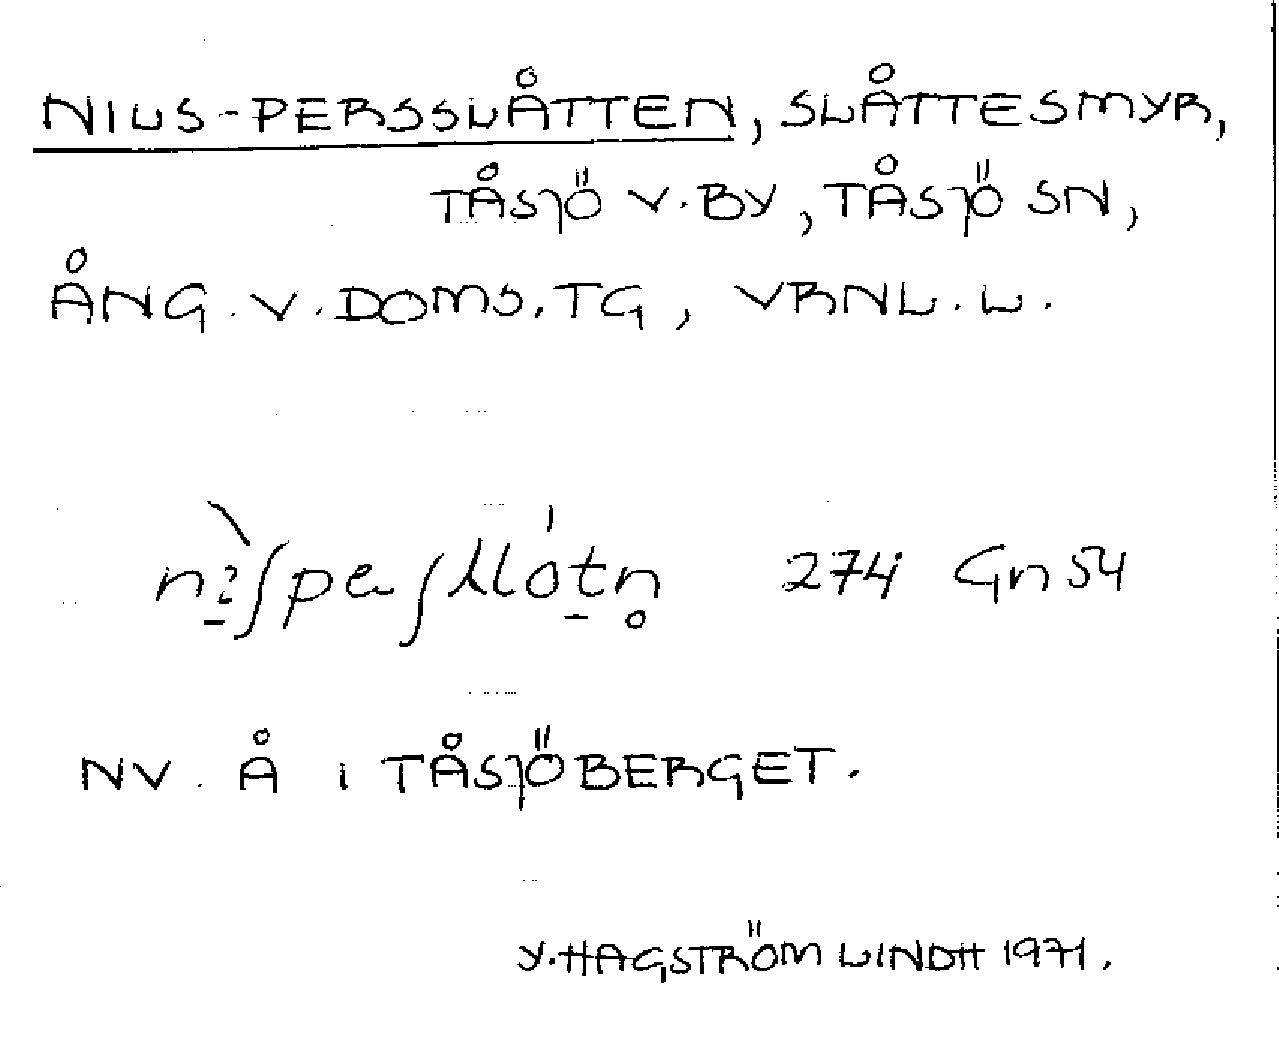 NILS-PERSSLÅTTEN, SLÅTTESMYR,
TÅSJÖ V. BY, TÅSJÖ SN,
ÅNG. V. DOMS. TG, VRNL. L.
274 Gn 54
NV. Å i TÅSJÖBERGET.
Y. HAGSTRÖM LINDH 1971.